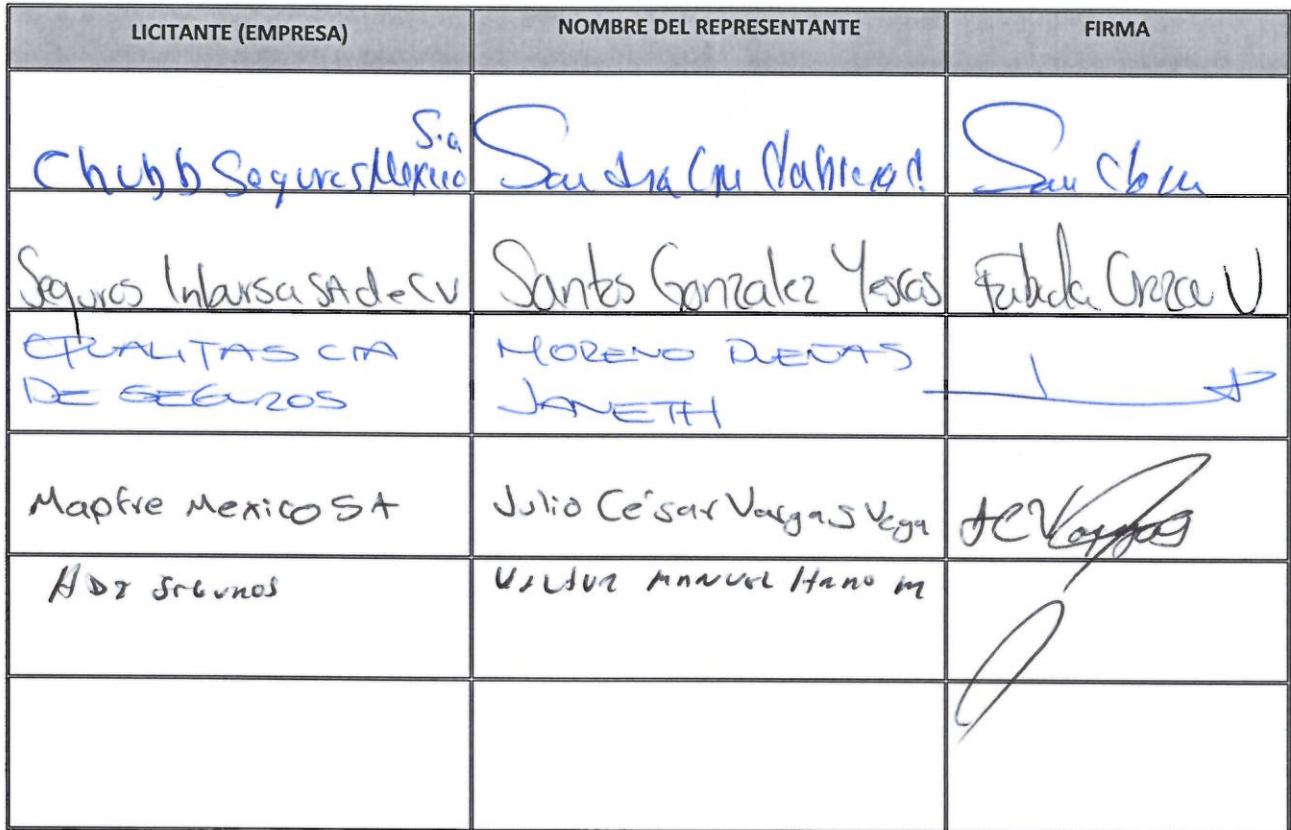 LICITANTE (EMPRESA) NOMBRE DEL REPRESENTANTE FIRMA
S.a
Chubb Seguros Mexico Sandra
Seguros Inbursa SA de CV Santos Gonzalez Yescas
QUALITAS CIA MORENO DUEÑAS
DE SEGUROS JANETH
Mapfre Mexico SA Julio César Vargas Vega JCVargas
HDI Seguros MANUEL